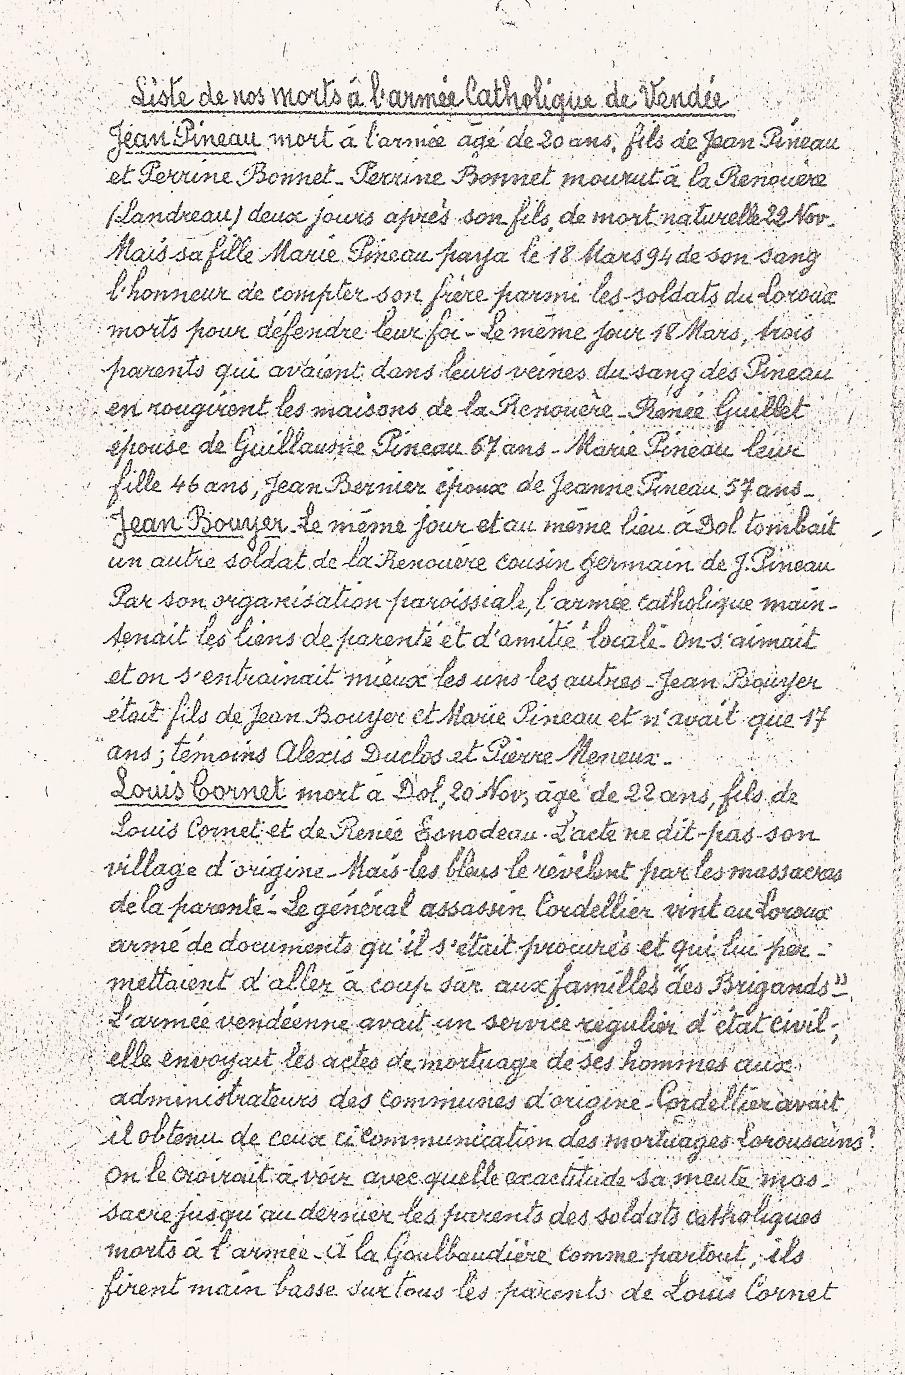 Liste de nos morts à l'armée Catholique de Vendée
Jean Pineau mort à l'armée âgé de 20 ans, fils de Jean Pineau
et Perrine Bonnet - Perrine Bonnet mourut à la Renouère
(Landreau) deux jours après son fils, de mort naturelle 22 Nov.
Mais sa fille Marie Pineau paya le 18 Mars 94 de son sang
l'honneur de compter son frère parmi les soldats du Loroux
morts pour défendre leur foi - Le même jour 18 Mars, trois
parents qui avaient dans leurs veines du sang des Pineau
en rougirent les maisons de la Renouère - Renée Guillet
épouse de Guillaume Pineau 67 ans - Marie Pineau leur
fille 46 ans, Jean Bernier époux de Jeanne Pineau 57 ans -
Jean Bouyer - Le même jour et au même lieu à Dol tombait
un autre soldat de la Renouère cousin germain de J. Pineau
Par son organisation paroissiale, l'armée catholique main-
tenait les liens de parenté et d'amitié locale - On s'aimait
et on s'entrainait mieux les uns les autres - Jean Bouyer
était fils de Jean Bouyer et Marie Pineau et n'avait que 17
ans ; témoins Alexis Duclos et Pierre Meneux -
Louis Cornet mort à Dol, 20 Nov, âgé de 22 ans, fils de
Louis Cornet et de Renée Esnodeau - L'acte ne dit pas son
village d'origine - Mais les bleus le révèlent par les massacres
de la parenté - Le général assassin Cordellier vint au Loroux
armé de documents qu'il s'était procurés et qui lui per-
mettaient d'aller à coup sûr aux familles "des Brigands" -
L'armée vendéenne avait un service régulier d'état civil ;
elle envoyait les actes de mortuage de ses hommes aux
administrateurs des communes d'origine - Cordellier avait
il obtenu de ceux ci communication des mortuages Lorousains ?
On le croirait à voir avec quelle exactitude sa meute mas-
sacre jusqu'au dernier les parents des soldats catholiques
morts à l'armée - A la Goulbaudière comme partout, ils
firent main basse sur tous les parents de Louis Cornet